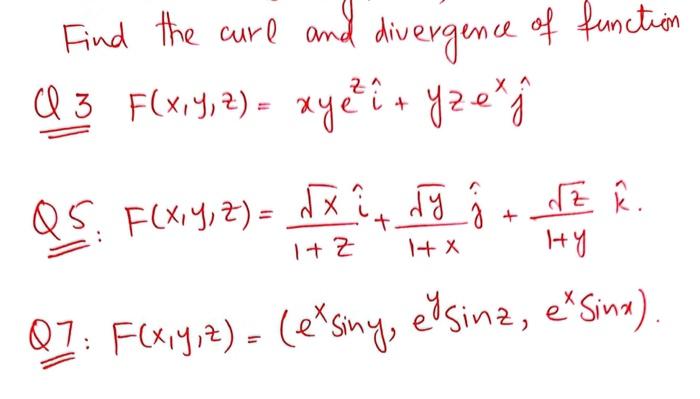 Find the curl and divergence of function
Q 3 F(x,y,z) = xye^z î + yze^x ĵ
Q5: F(x,y,z) = √x/(1+z) î + √y/(1+x) ĵ + √z/(1+y) k̂.
Q7: F(x,y,z) = (e^x siny, e^y Sinz, e^x Sinx).